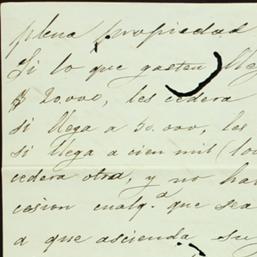 plena propiedad
Si lo que gasten lleg
$ 20.000, les cedera
si llega a 50.000, les
si llega a cien mil (100
cedera otra, y no hay
cesion cualq.a que sea
a que ascienda su